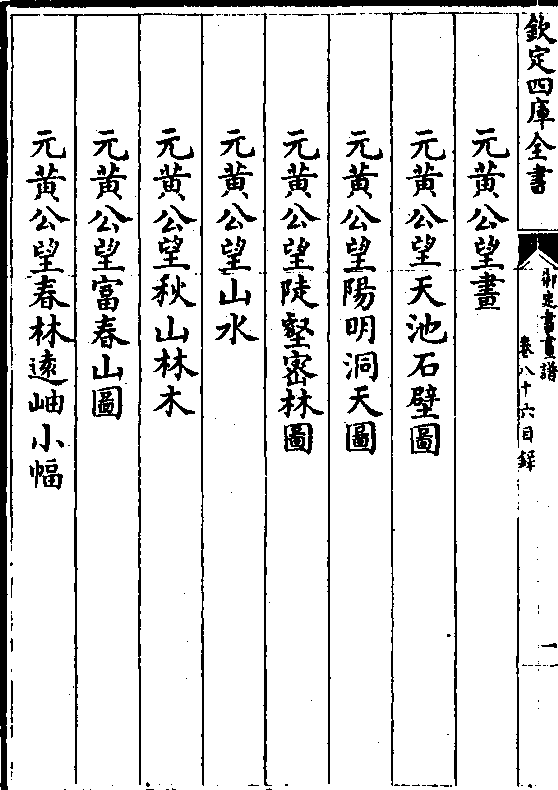 欽定四庫全書
御定書畫譜
卷八十六目録
一
元黄公望畫
元黄公望天池石壁圖
元黄公望陽明洞天圖
元黄公望陡壑密林圖
元黄公望山水
元黄公望秋山林木
元黄公望富春山圖
元黄公望春林遠岫小幅